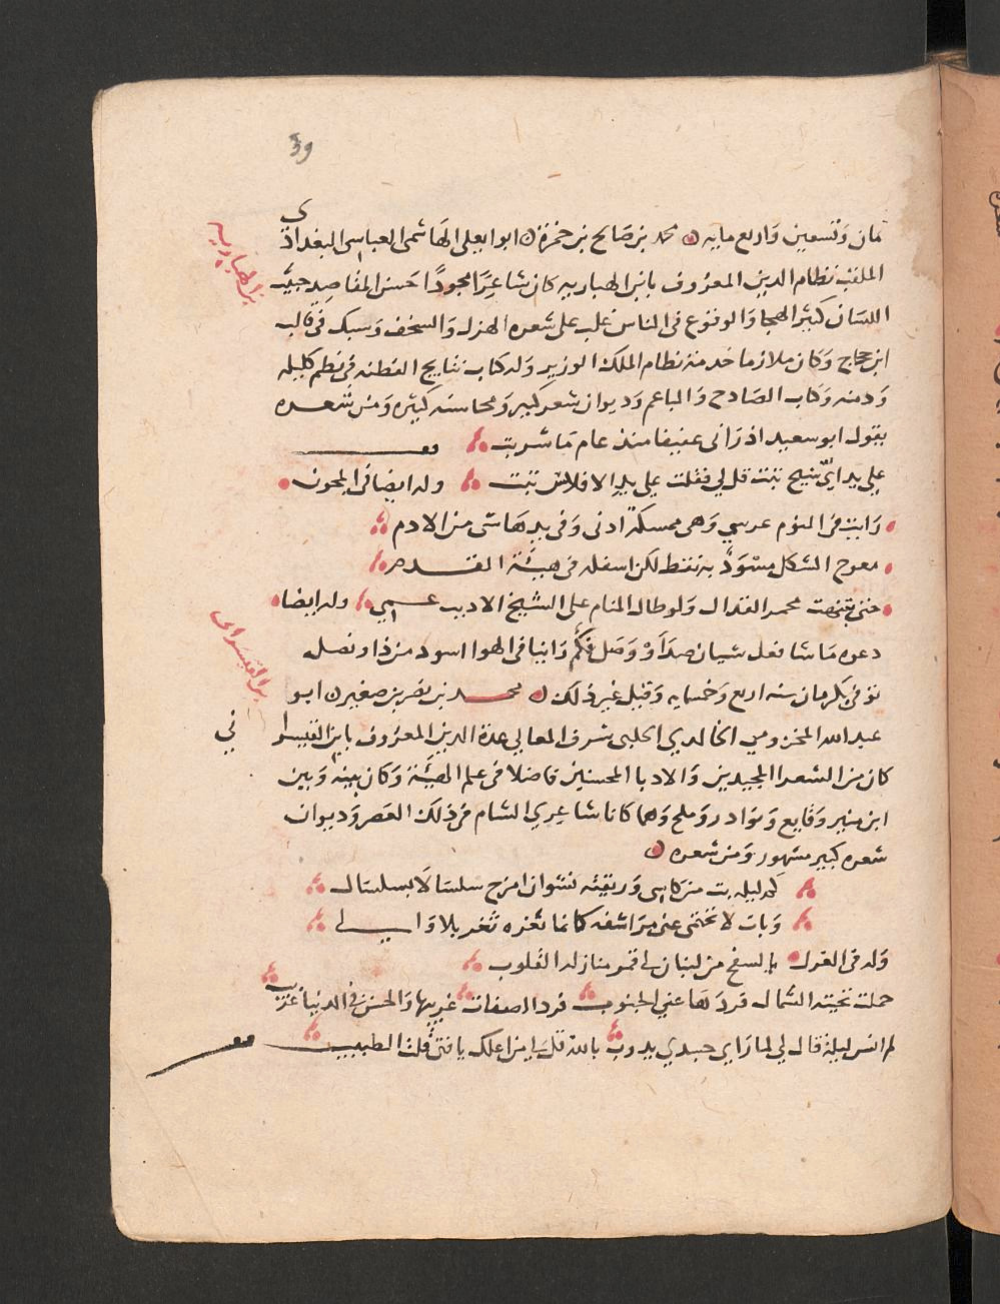 39
مان وتسعين واربع مايه محمد بن صالح بن حمزة ابو يعلى الهاشمى العباسى البغدادى
بن الهباريه
الملقب نظام الدين المعروف بابن الهباريه كان شاعرًا مجودًا حسن المقاصد خبيث
اللسان كثير الهجا والوقوع فى الناس غلب على شعره الهزل والسخف وسبك فى قالب
ابن حجاج وكان ملازما خدمة نظام الملك الوزير وله كتاب نتايج الفطنه فى نظم كليله
ودمنه وكتاب الصادح والباغم وديوان شعر كبير ومحاسنه كثيره ومن شعره
يقول ابو سعيد اذ رانى عفيفا منذ عام ما شربت
على يد اىّ شيخ تبت قل لى فقلت على يد الافلاس تبت وله ايضا فى المجون
رايت فى النوم عرسي وهى ممسكة ادنى وفى يدها شى من الادم
معوج الشكل مسْودٌّ به نقط لكن اسفله فى هيئة القدم
حتى تنبهت محمر القذال ولو طال المنام على الشيخ الاديب عمي وله ايضا
بن القيسراى
دعوه ما شا فعل وصل وانيا فى الهوا اسود من ذا ونصل
توفى بكرمان سنه اربع وخمسايه وقبل غير ذلك محمد بن نصر بن صغير ابو
عبد الله المخزومى الخالدي الحلبى شرف المعالى عدة الدين المعروف بابن القيسرانى
كان من الشعرا المجيدين والادبا المحسنين فاضلا فى علم الهيئة وكان بينه وبين
ابن منير وقايع ونوادر وملح وهما كانا شاعرى الشام فى ذلك العصر وديوان
شعره كبير مشهور ومن شعره
كم ليله بت من كاسى وريقته نشوان امزج سلسالا بسلسال
وبات لا تحتمى عنى مراشفه كانما ثغره ثغر بلا والى
وله فى الغزل بالسفح من لبنان لى قمر منازله القلوب
حملت تحيته الشمال فردها عني الجنوب فرد الصفات غريبها والحسن فى الدنيا غريب
لم انس ليلة قال لي لما راى جسدي يذوب بالله قل من اعلك يا فتى قلت الطبيب